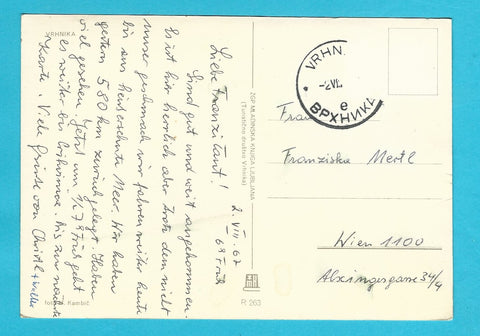 VRHNIKA
2. VII. 67
6h Früh
Liebe Franzi Tant!
Sind gut und weit angekommen.
Es ist hier herrlich aber trotz dem nicht
unser geschmack wir fahren weiter heute
bis ans heis ersehnte Meer. Wir haben
gestern 580 km zurückgelegt. Haben
viel gesehen. Jetzt um 1/2 7 Früh geht
es weiter bis Crikvenica. Bis zur nächsten
Karte. Viele Grüsse von Christl + Willi
foto: A. Kambič
ZGP MLADINSKA KNJIGA LJUBLJANA
(Turistično društvo Vrhnika)
R 263
VRHN.
-2.VII.
e
ВРХНИКА
Frau
Franziska Mertl
Wien 1100
Alxingergasse 34/4